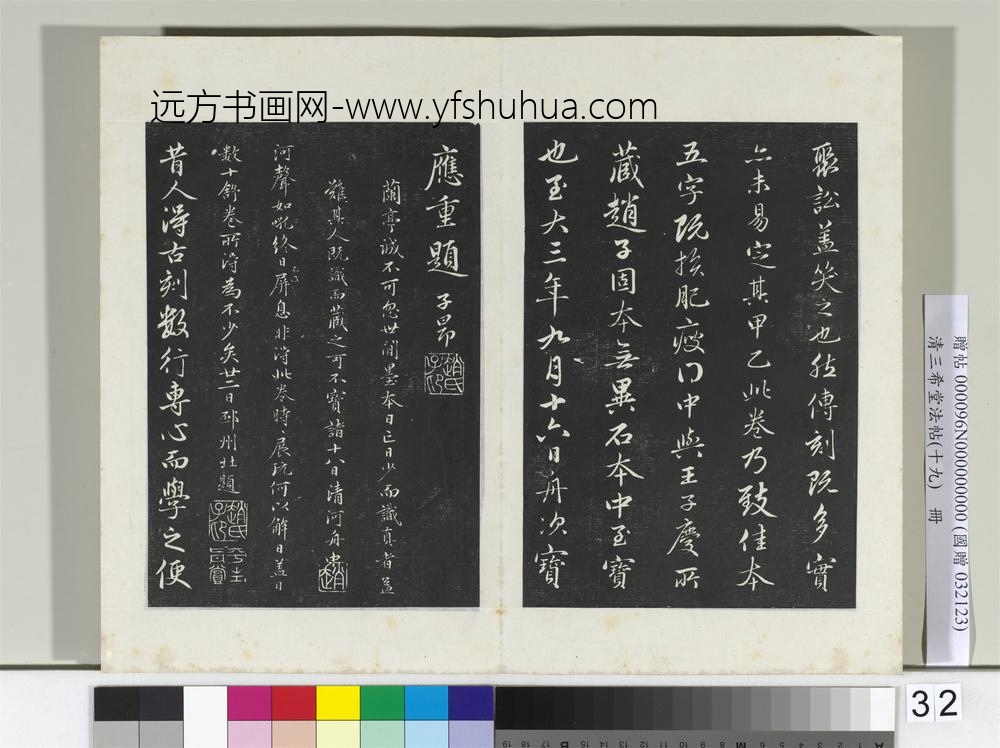 远方书画网-www.yfshuhua.com
聚訟盖笑之也然傳刻既多實
亦未易定其甲乙此卷乃致佳本
五字既損肥瘦得中與王子慶所
藏趙子固本無異石本中至寶
也至大三年九月十六日舟次寶
應重題 子昂
蘭亭誠不可忽世間墨本日亡日少而識真者益
難其人既識而藏之可不寶諸十八日清河舟
河聲如吼終日屏息非得此卷時〻展玩何以解日盖日
數十舒卷所得為不少矣廿二日邳州北題
昔人得古刻數行專心而學之便
贈帖 000096N000000000 (國贈 032123)
清三希堂法帖(十九) 冊
32